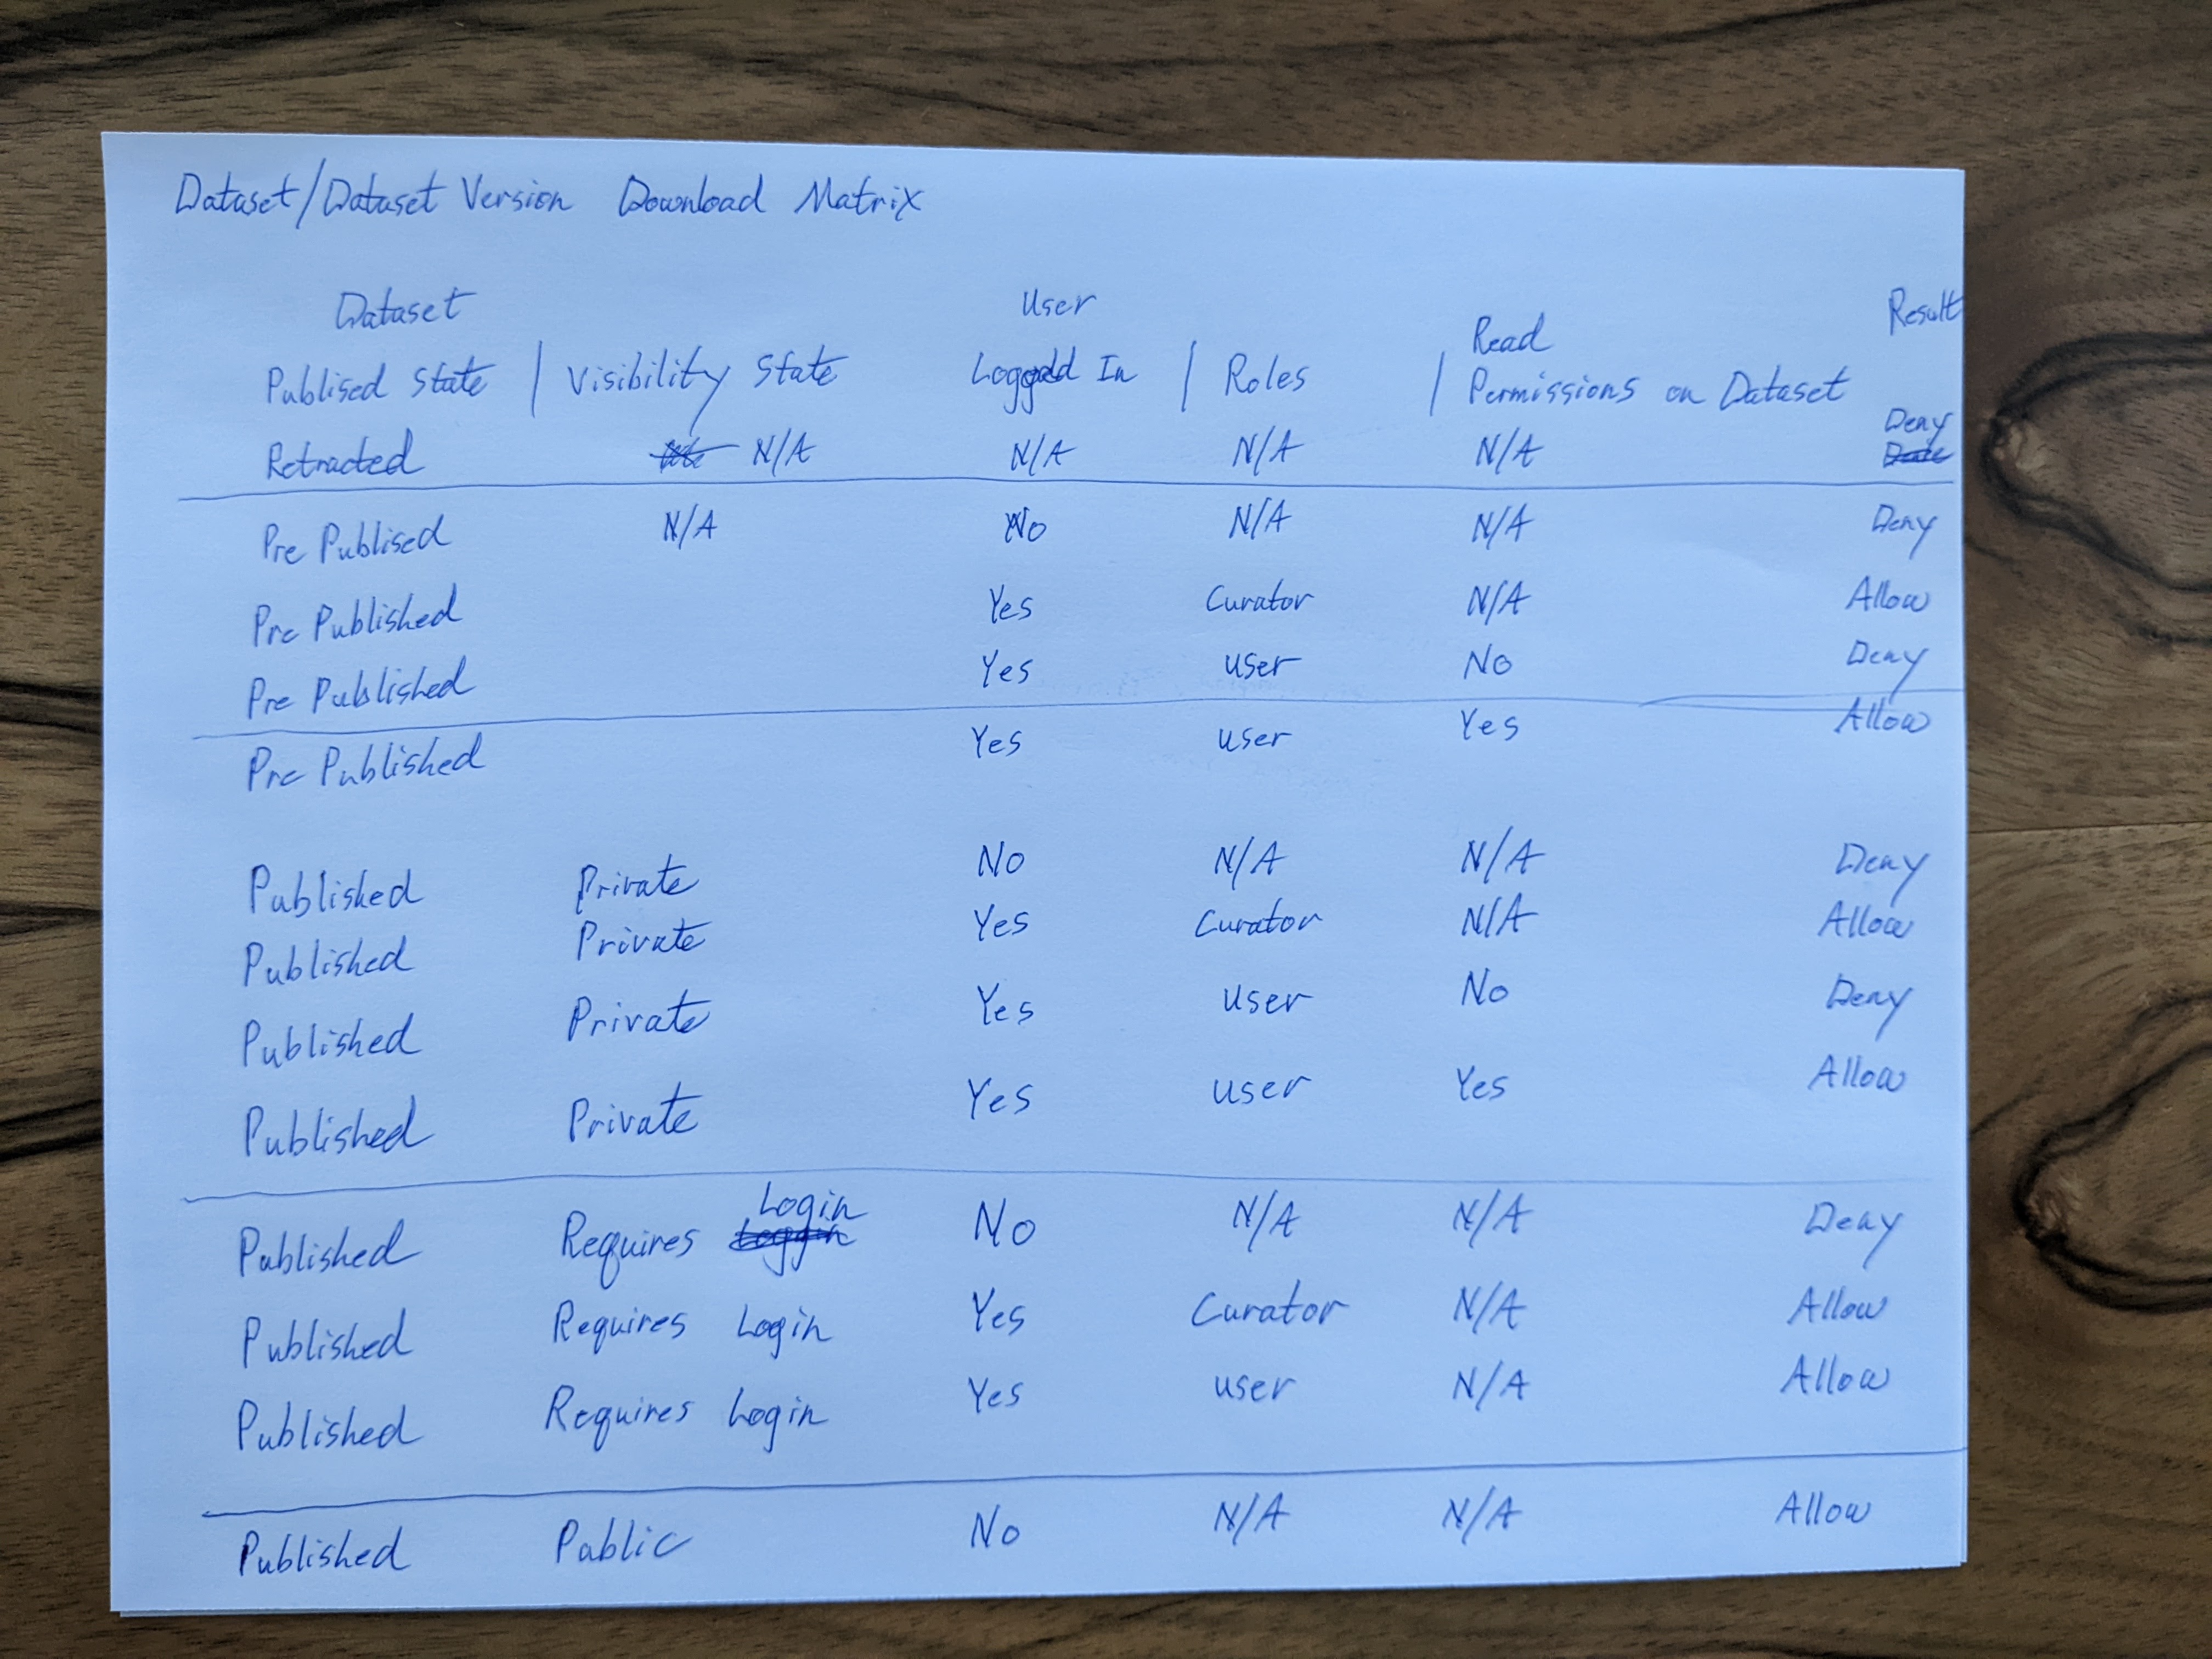 Dataset/Dataset Version Download Matrix
Dataset User Result
Publised State | Visibility State Logged In | Roles | Read Permissions on Dataset
Retracted N/A N/A N/A N/A Deny
Pre Publised N/A No N/A N/A Deny
Pre Published Yes Curator N/A Allow
Pre Published Yes user No Deny
Pre Published Yes user Yes Allow
Published Private No N/A N/A Deny
Published Private Yes Curator N/A Allow
Published Private Yes user No Deny
Published Private Yes user Yes Allow
Published Requires Login No N/A N/A Deny
Published Requires Login Yes Curator N/A Allow
Published Requires Login Yes user N/A Allow
Published Public No N/A N/A Allow